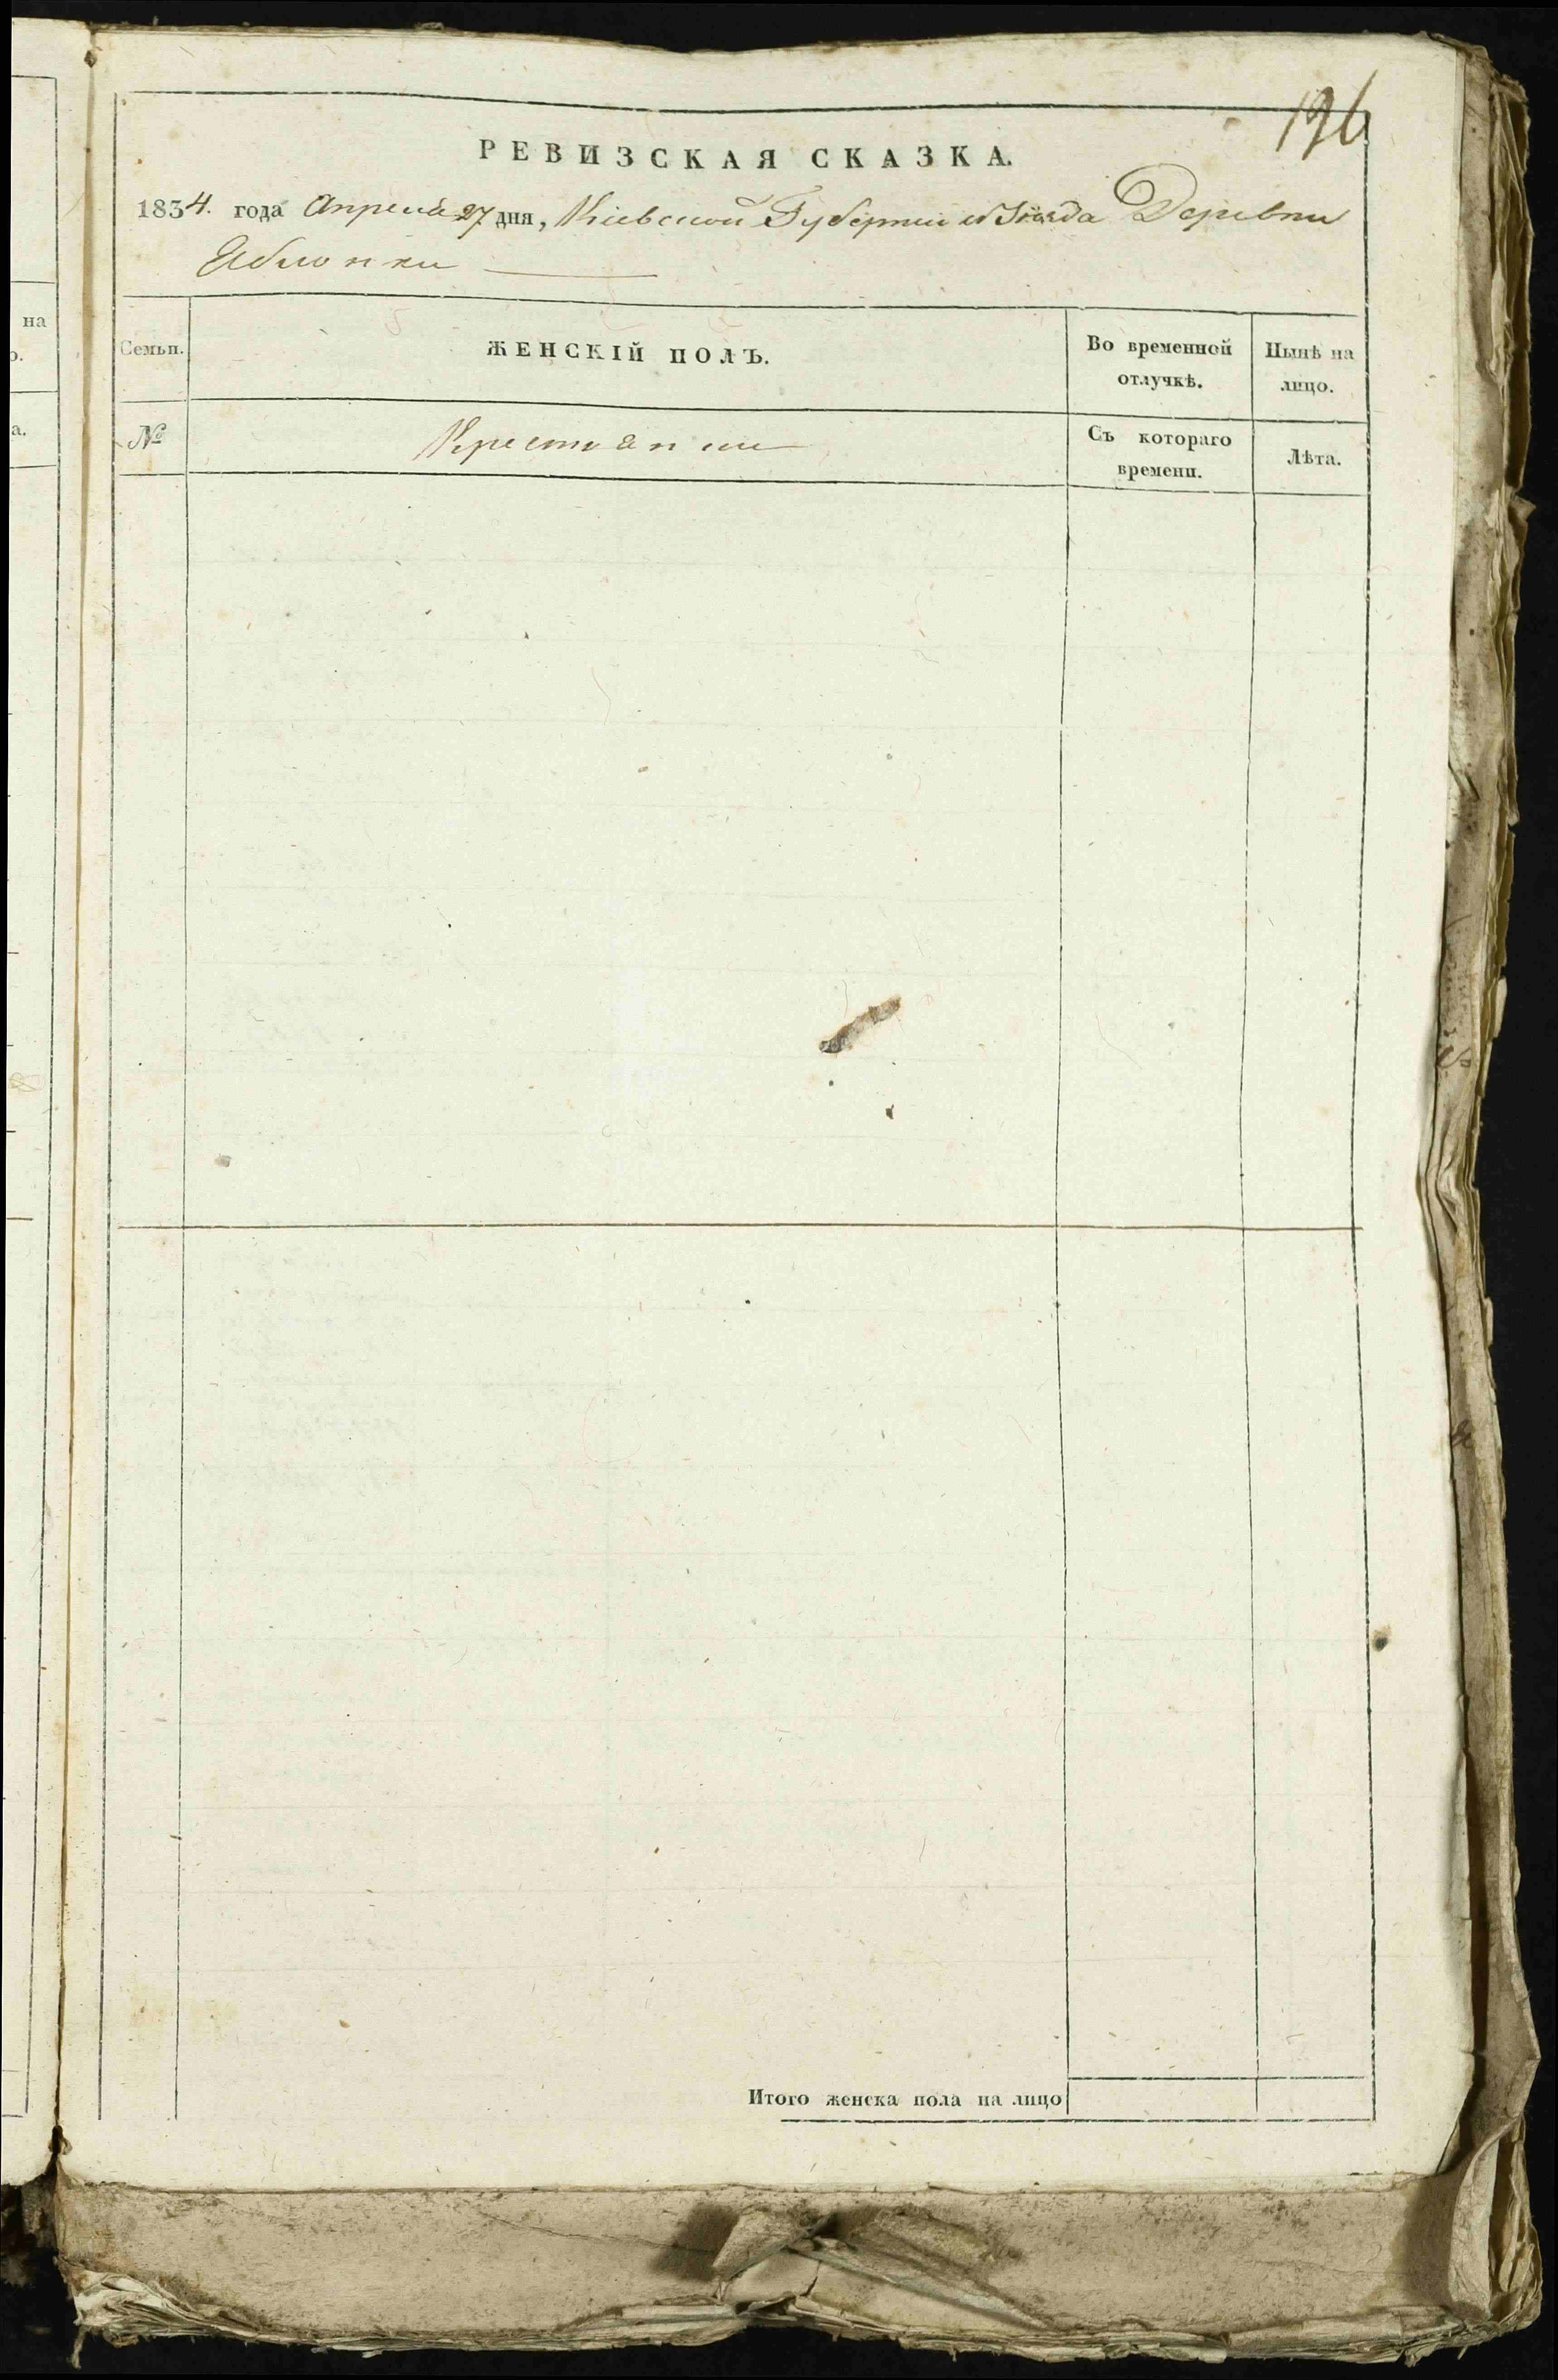 196
РЕВИЗСКАЯ СКАЗКА.
1834. года Апреля 27 дня, Кіевской Губерніи и Уѣзда Деревни
Яблонки
Семьи.
ЖЕНСКІЙ ПОЛЪ.
Во временной
отлучкѣ.
Нынѣ на
лицо.
№
Крестьянки
Съ котораго
времени.
Лѣта.
Итого женска пола на лицо
на
о.
а.